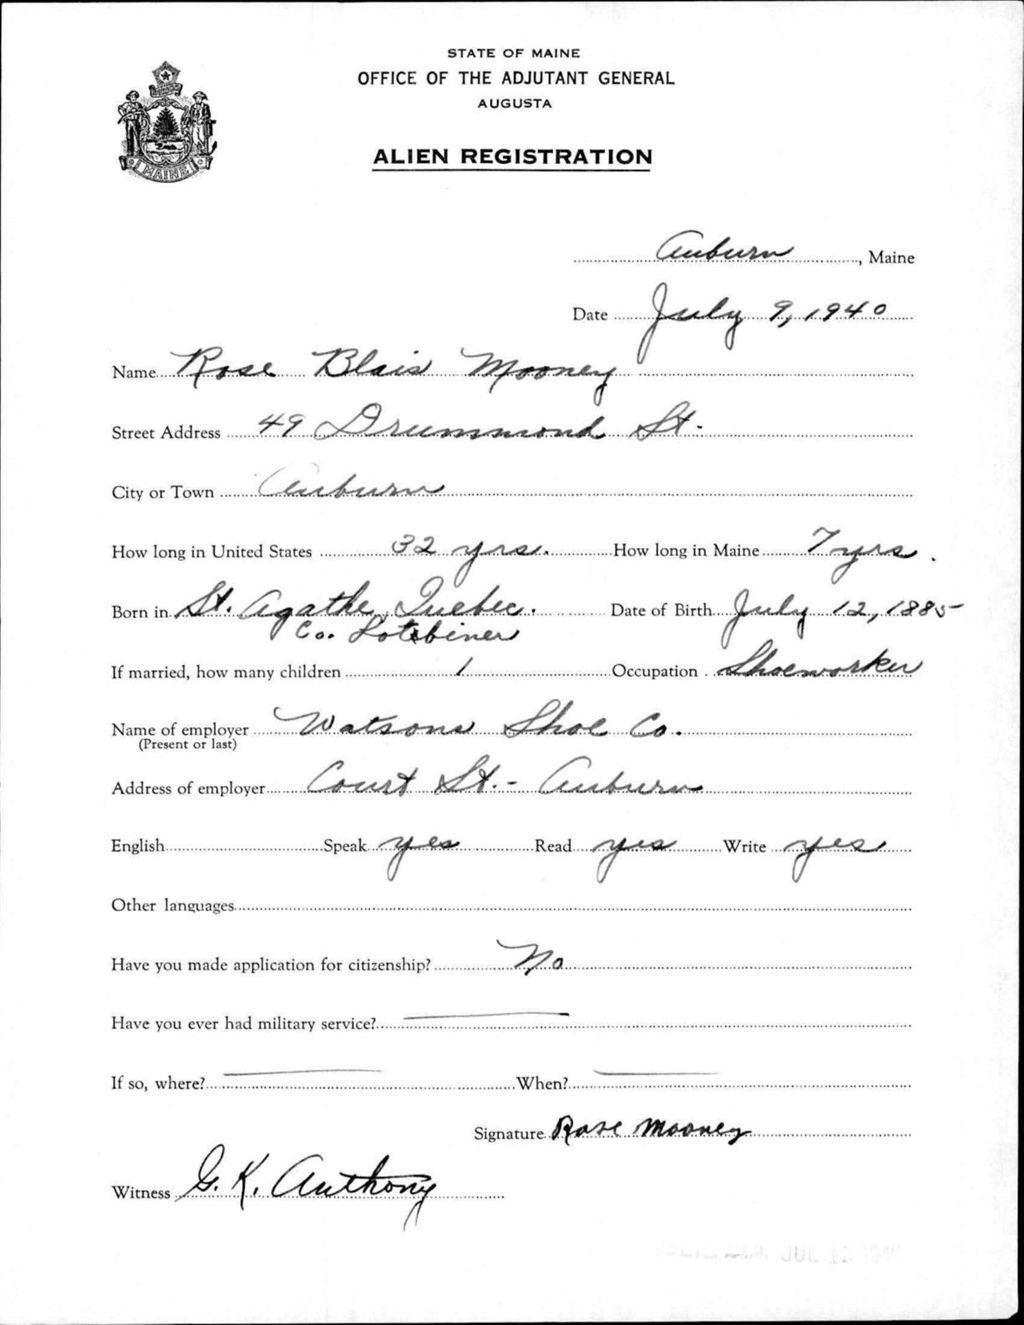 STATE OF MAINE
OFFICE OF THE ADJUTANT GENERAL
AUGUSTA
ALIEN REGISTRATION
MAINE
Auburn, Maine
Date July 9, 1940
Name Rose Blais Mooney
Street Address 49 Drummond St.
City or Town Auburn
How long in United States 32 yrs. How long in Maine 7 yrs.
Born in St. Agathe, Quebec. Date of Birth July 12, 1885
Co. Lotbiner
If married, how many children 1 Occupation Shoeworker
Name of employer Watsons Shoe Co.
(Present or last)
Address of employer Court St. - Auburn
English Speak yes Read yes Write yes
Other languages
Have you made application for citizenship? No
Have you ever had military service? —
If so, where? — When? —
Signature Rose Mooney
Witness G. K. Anthony
JUL 12 1940